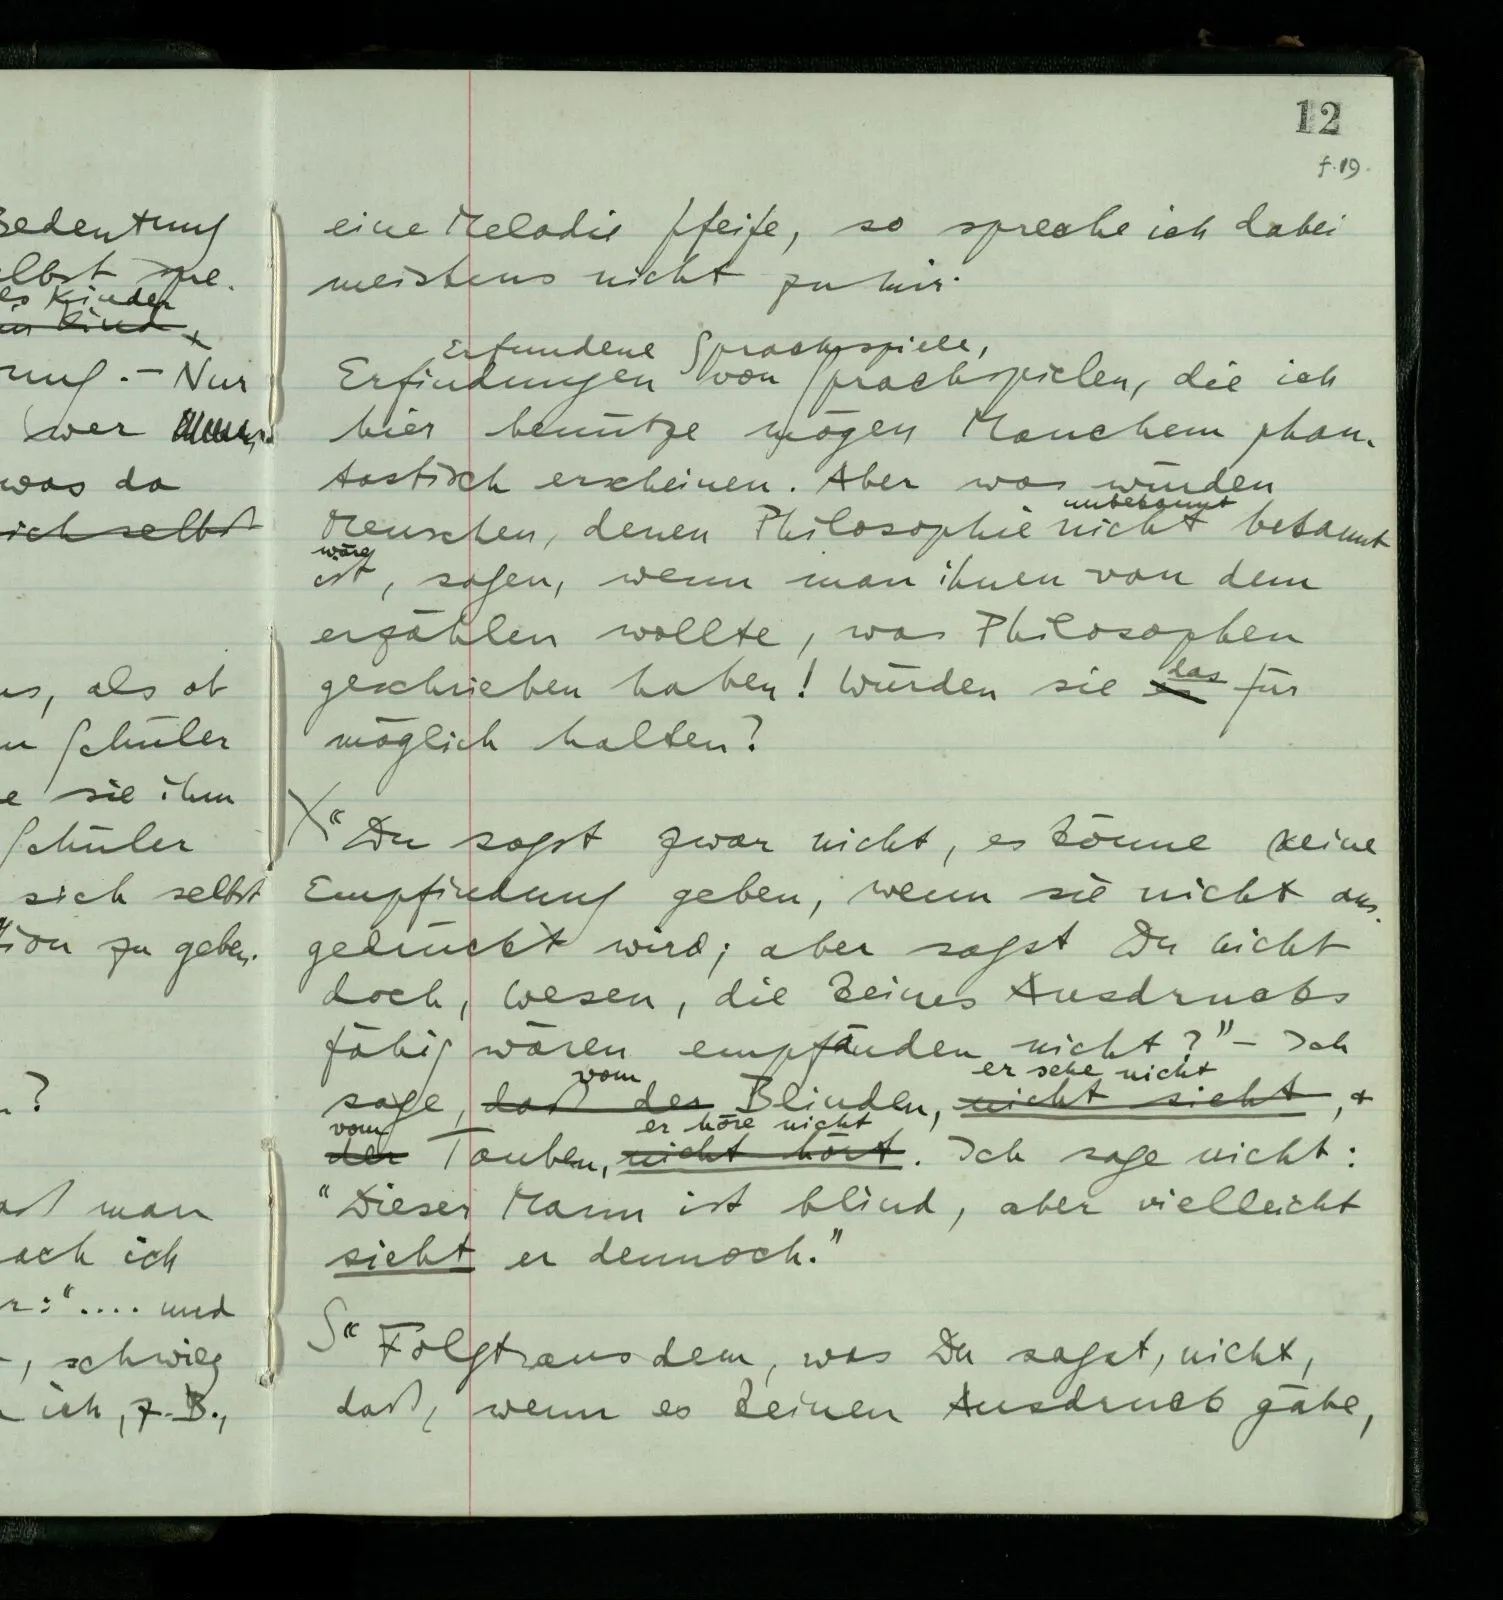 12
f. 19.
eine Melodie pfeife, so spreche ich dabei
meistens nicht zu mir.
Erfundene Sprachspiele,
Erfindungen von Sprachspielen, die ich
hier benütze mögen Manchem phan-
tastisch erscheinen. Aber was würden
unbekannt
Menschen, denen Philosophie nicht bekannt
wäre
ist, sagen, wenn man ihnen von dem
erzählen wollte, was Philosophen
geschrieben haben! Würden sie es das für
möglich halten?
"Du sagst zwar nicht, es könne keine
Empfindung geben, wenn sie nicht aus-
gedrückt wird; aber sagst Du nicht
doch, Wesen, die keines Ausdrucks
fähig wären empfänden nicht?" – Ich
vom er sehe nicht
sage, daß der Blinden, nicht sieht, +
vom er höre nicht
der Tauben, nicht hört. Ich sage nicht:
"Dieser Mann ist blind, aber vielleicht
sieht er dennoch."
S "Folgt aus dem, was Du sagst, nicht,
daß, wenn es keinen Ausdruck gäbe,
Bedeutung
elbst spre-
es Kinder
in Kind
ung. – Nur
wer
was da
sich selbst
us, als ob
n Schüler
e sie ihm
Schüler
sich selbst
tion zu geben.
n?
aß man
ach ich
r: ".... und
-, schwieg
ich, z.B.,